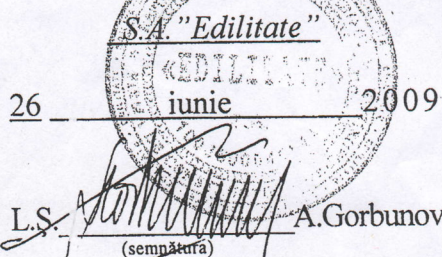 S.A. "Edilitate"
«EDILITATE»
26 iunie 2009
L.Ș. A.Gorbunov
(semnătura)